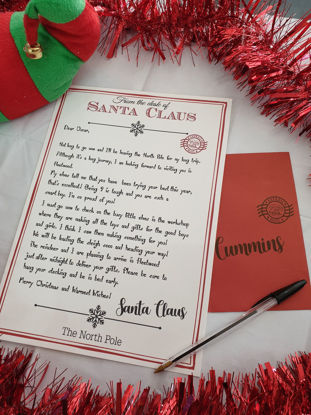 From the desk of
SANTA CLAUS
Dear Oscar,
Not long to go now and I'll be leaving the North Pole for my big trip.
Although it's a long journey, I am looking forward to visiting you in
Fleetwood.
My elves tell me that you have been trying your best this year,
that's excellent! Being 5 is tough and you are such a
smart boy. I'm so proud of you!
I must go now to check on the busy little elves in the workshop
where they are making all the toys and gifts for the good boys
and girls. I think I saw them making something for you!
We will be loading the sleigh soon and heading your way!
The reindeer and I are planning to arrive in Fleetwood
just after midnight to deliver your gifts. Please be sure to
hang your stocking and be in bed early.
Merry Christmas and Warmest Wishes!
Santa Claus
The North Pole
Cummins